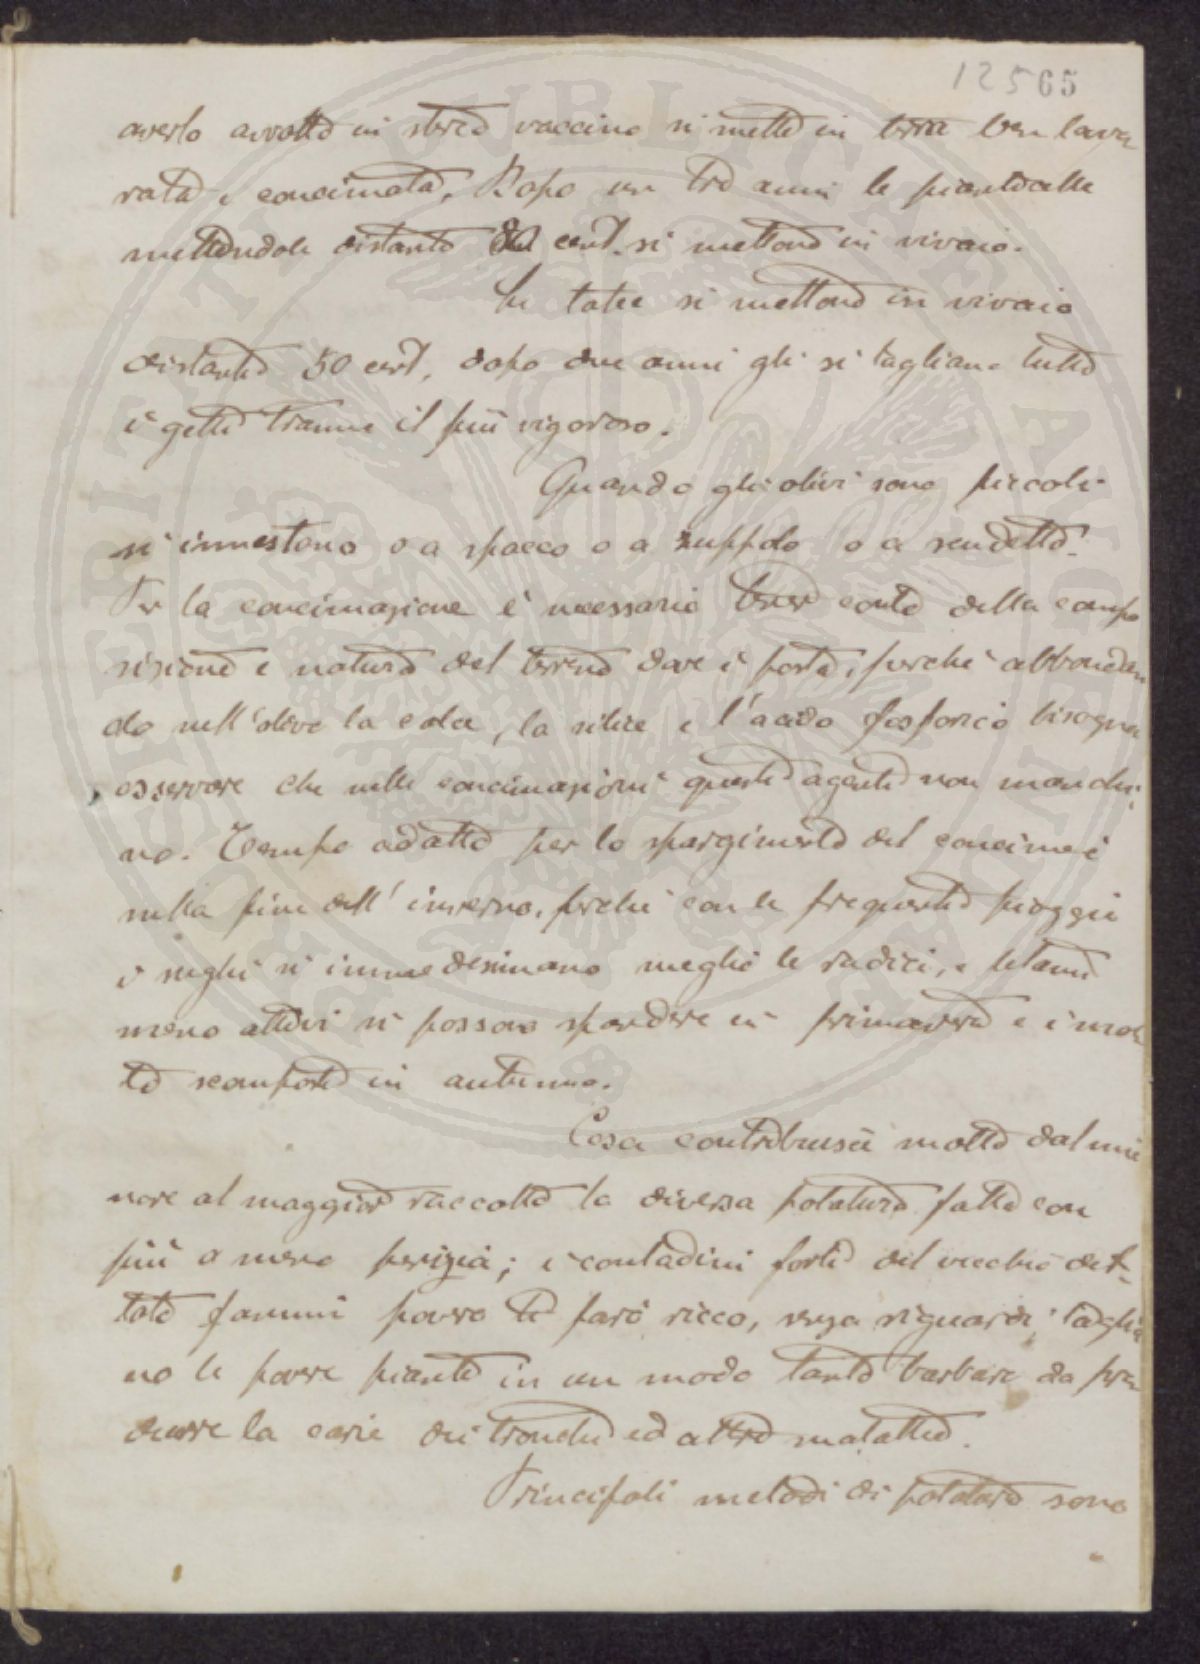 12565
averlo avvolto in sterco vaccino si mette in terra ben lavo
rata e concimata. Dopo un tre anni le pianticelle
mettendole distante cent. si mettono in vivaio.
Le talee si mettono in vivaio
distante 50 cent, dopo due anni gli si tagliano tutti
i getti tranne il più vigoroso.
Quando gli olivi sono piccoli
si innestono o a spacco o a zuffolo o a scudetto.
Per la concimazione è necessario tener conto della compo
sizione e natura del terreno dove è posto, perchè abbondan
do nell'olivo la calce, la silice e l'acido fosforico bisogna
osservare che nelle concimazioni questi agenti non manchi
no. Tempo adatto per lo spargimento del concime è
nella fine dell'inverno, perchè con le frequenti pioggie
o neghi si immedesimano meglio le radici, e letami
meno attivi si possono spandere in primavera e i mol
to scomposti in autunno.
Cosa contribuisce molto dal mi
nore al maggior raccolto la diversa potatura fatta con
più o meno perizia; i contadini forti del vecchio det-
tato fammi povero ti farò ricco, senza riguardi taglia
no le povre piante in un modo tanto barbaro da pro
durre la carie dei tronchi ed altre malattie.
Principali metodi di potatura sono